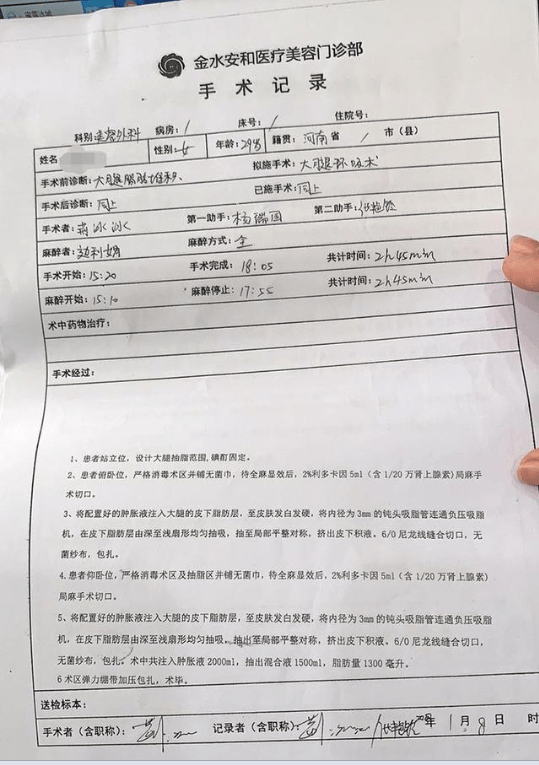 金水安和医疗美容门诊部
手术记录
科别: 美容外科 病房: / 床号: / 住院号:
姓名 性别: 女 年龄: 29岁 籍贯: 河南 省 / 市（县）
手术前诊断: 大腿脂肪堆积 拟施手术: 大腿环吸术
手术后诊断: 同上 已施手术: 同上
手术者: 蒋冰冰 第一助手: 杨瑞国 第二助手:
麻醉者: 麻醉方式: 全
手术开始: 15:20 手术完成: 18:05 共计时间: 2h45min
麻醉开始: 15:10 麻醉停止: 17:55 共计时间: 2h45min
术中药物治疗:
手术经过:
1、患者站立位，设计大腿抽脂范围，碘酊固定。
2、患者俯卧位，严格消毒术区并铺无菌巾，待全麻显效后，2%利多卡因 5ml（含 1/20 万肾上腺素）局麻手
术切口。
3、将配置好的肿胀液注入大腿的皮下脂肪层，至皮肤发白发硬，将内径为 3mm 的钝头吸脂管连通负压吸脂
机，在皮下脂肪层由深至浅扇形均匀抽吸，抽至局部平整对称，挤出皮下积液。6/0 尼龙线缝合切口，无
菌纱布，包扎。
4.患者仰卧位，严格消毒术区及抽脂区并铺无菌巾，待全麻显效后，2%利多卡因 5ml（含 1/20 万肾上腺素）
局麻手术切口。
5、将配置好的肿胀液注入大腿的皮下脂肪层，至皮肤发白发硬，将内径为 3mm 的钝头吸脂管连通负压吸脂
机，在皮下脂肪层由深至浅扇形均匀抽吸，抽出至局部平整对称，挤出皮下积液。6/0 尼龙线缝合切口，
无菌纱布，包扎。术中共注入肿胀液 2000ml，抽出混合液 1500ml，脂肪量 1300 毫升。
6 术区弹力绷带加压包扎，术毕。
送检标本:
手术者（含职称）: 记录者（含职称）: 年 1 月 8 日 时